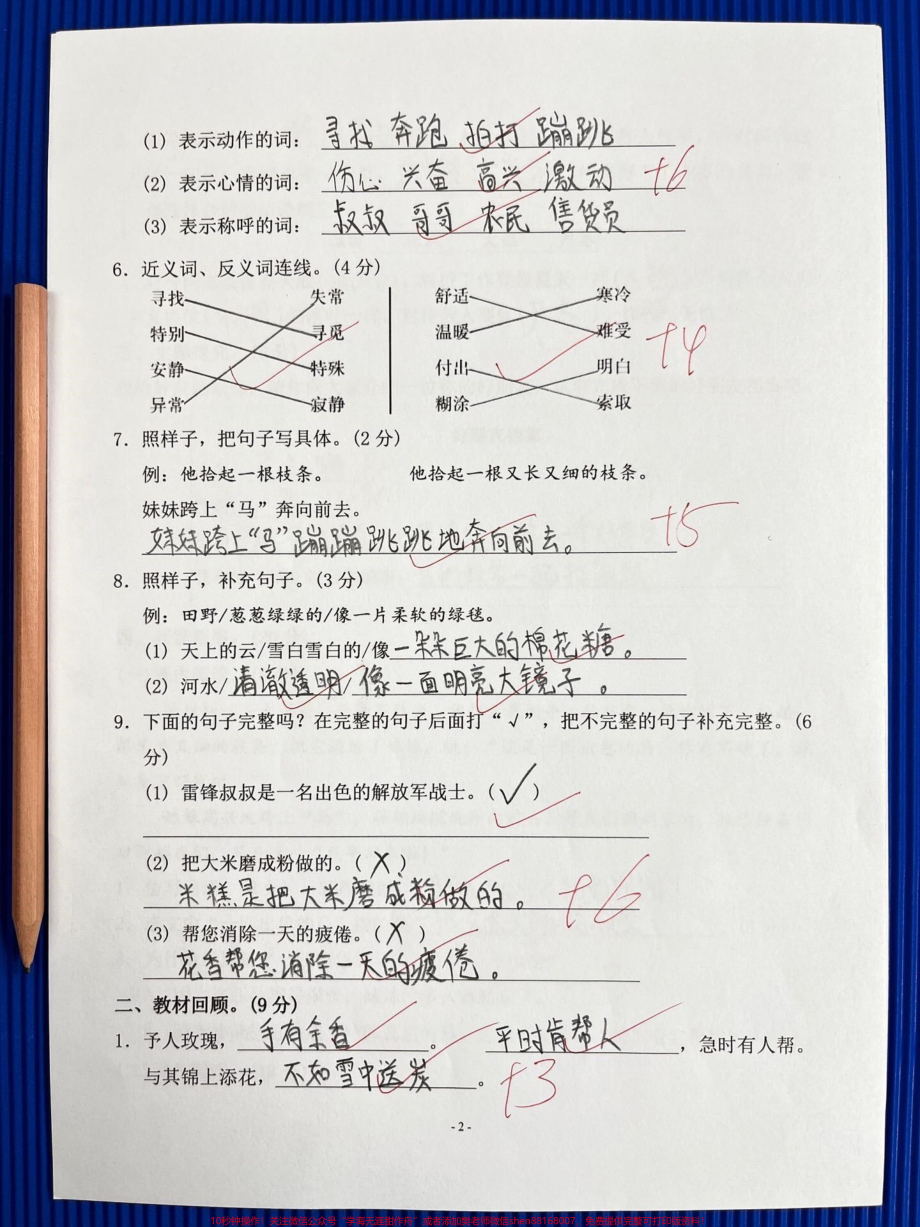 (1) 表示动作的词：寻找 奔跑 拍打 蹦跳
(2) 表示心情的词：伤心 兴奋 高兴 激动 +6
(3) 表示称呼的词：叔叔 哥哥 农民 售货员
6．近义词、反义词连线。(4 分)
寻找 失常 舒适 寒冷
特别 寻觅 温暖 难受 +4
安静 特殊 付出 明白
异常 寂静 糊涂 索取
7．照样子，把句子写具体。(2 分)
例：他拾起一根枝条。 他拾起一根又长又细的枝条。
妹妹跨上“马”奔向前去。
妹妹跨上“马”蹦蹦跳跳地奔向前去。 +5
8．照样子，补充句子。(3 分)
例：田野/葱葱绿绿的/像一片柔软的绿毯。
(1) 天上的云/雪白雪白的/像一朵朵巨大的棉花糖。
(2) 河水/清澈透明/像一面明亮大镜子。
9．下面的句子完整吗？在完整的句子后面打“√”，把不完整的句子补充完整。(6
分)
(1) 雷锋叔叔是一名出色的解放军战士。(√)
(2) 把大米磨成粉做的。(X)
米糕是把大米磨成粉做的。 +6
(3) 帮您消除一天的疲倦。(X)
花香帮您消除一天的疲倦。
二、教材回顾。(9 分)
1．予人玫瑰，手有余香。 平时肯帮人，急时有人帮。
与其锦上添花，不如雪中送炭。 +3
- 2 -